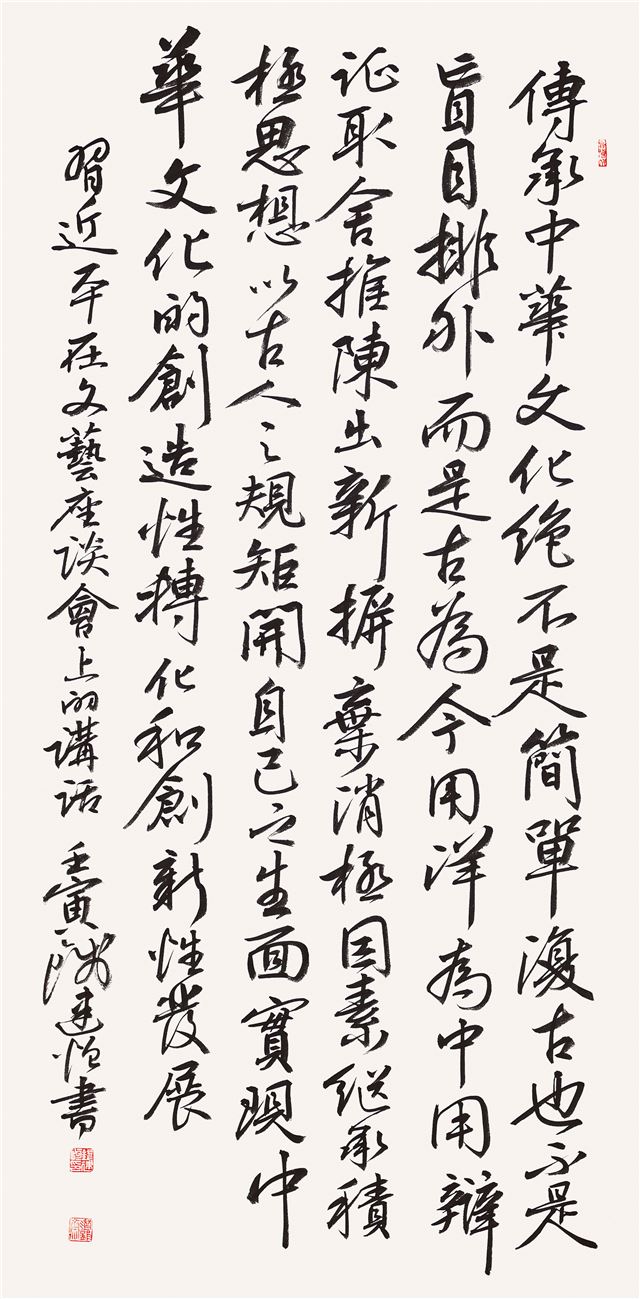 傳承中華文化绝不是簡單復古也不是
盲目排外而是古為今用洋為中用辯
证取舍推陳出新摒棄消極因素继承積
極思想以古人之規矩開自己之生面實現中
華文化的創造性轉化和創新性發展
習近平在文藝座谈會上的講话 壬寅 建 書